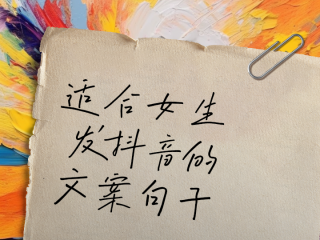 适合女生
发抖音的
文案句子